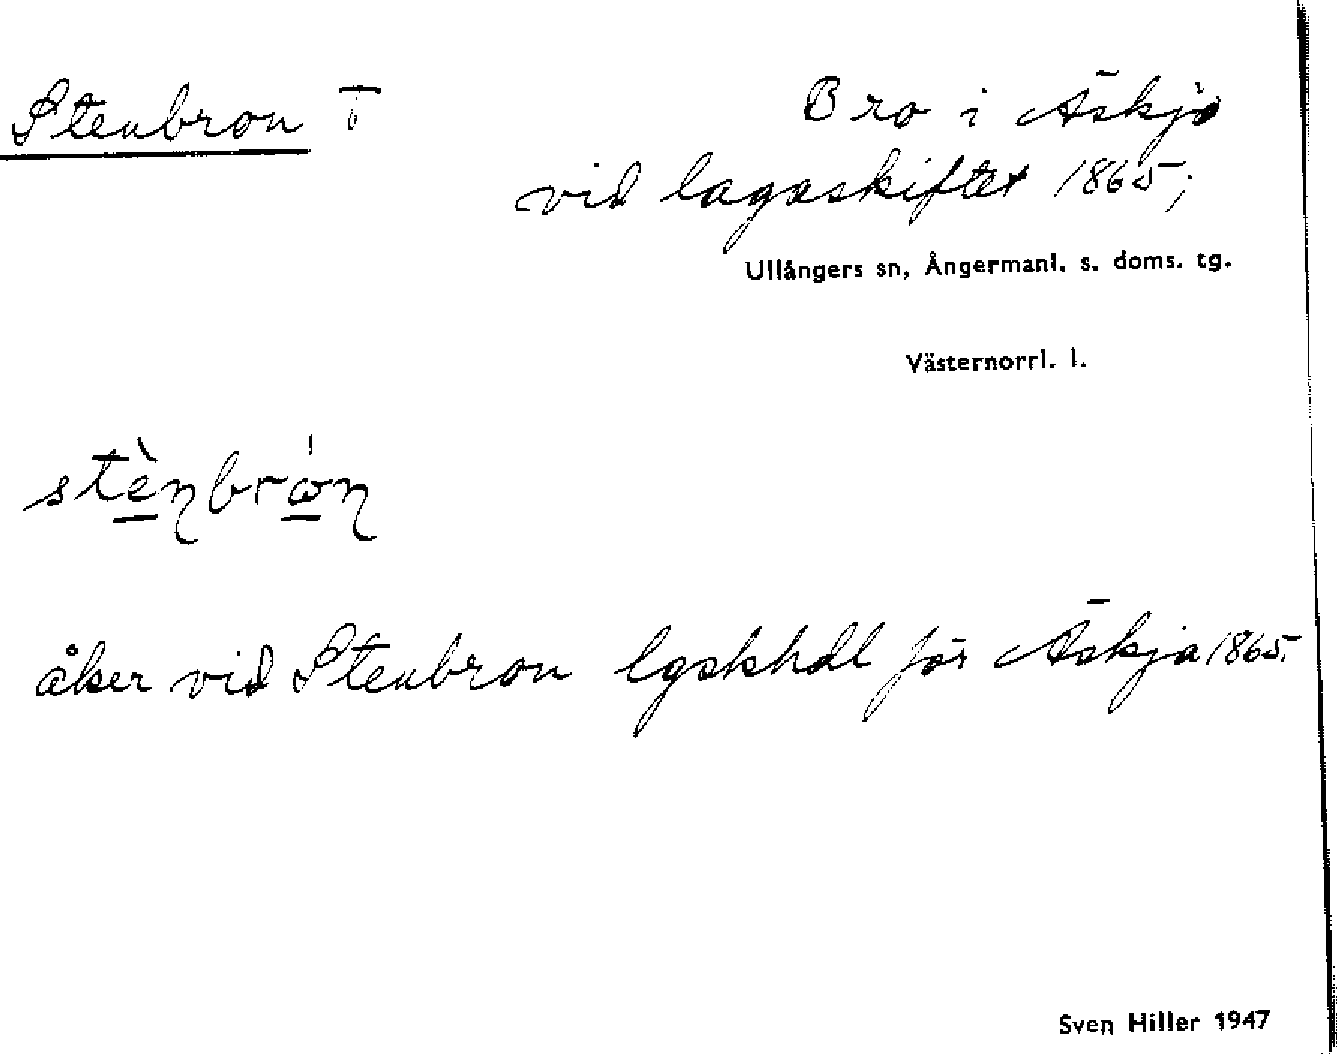 Stenbron T
Bro i Äskja
vid lagaskiftet 1865;
Ullångers sn, Ångermanl. s. doms. tg.
Västernorrl. l.
stènbrón
åker vid Stenbron lgskhdl för Äskja 1865.
Sven Hiller 1947